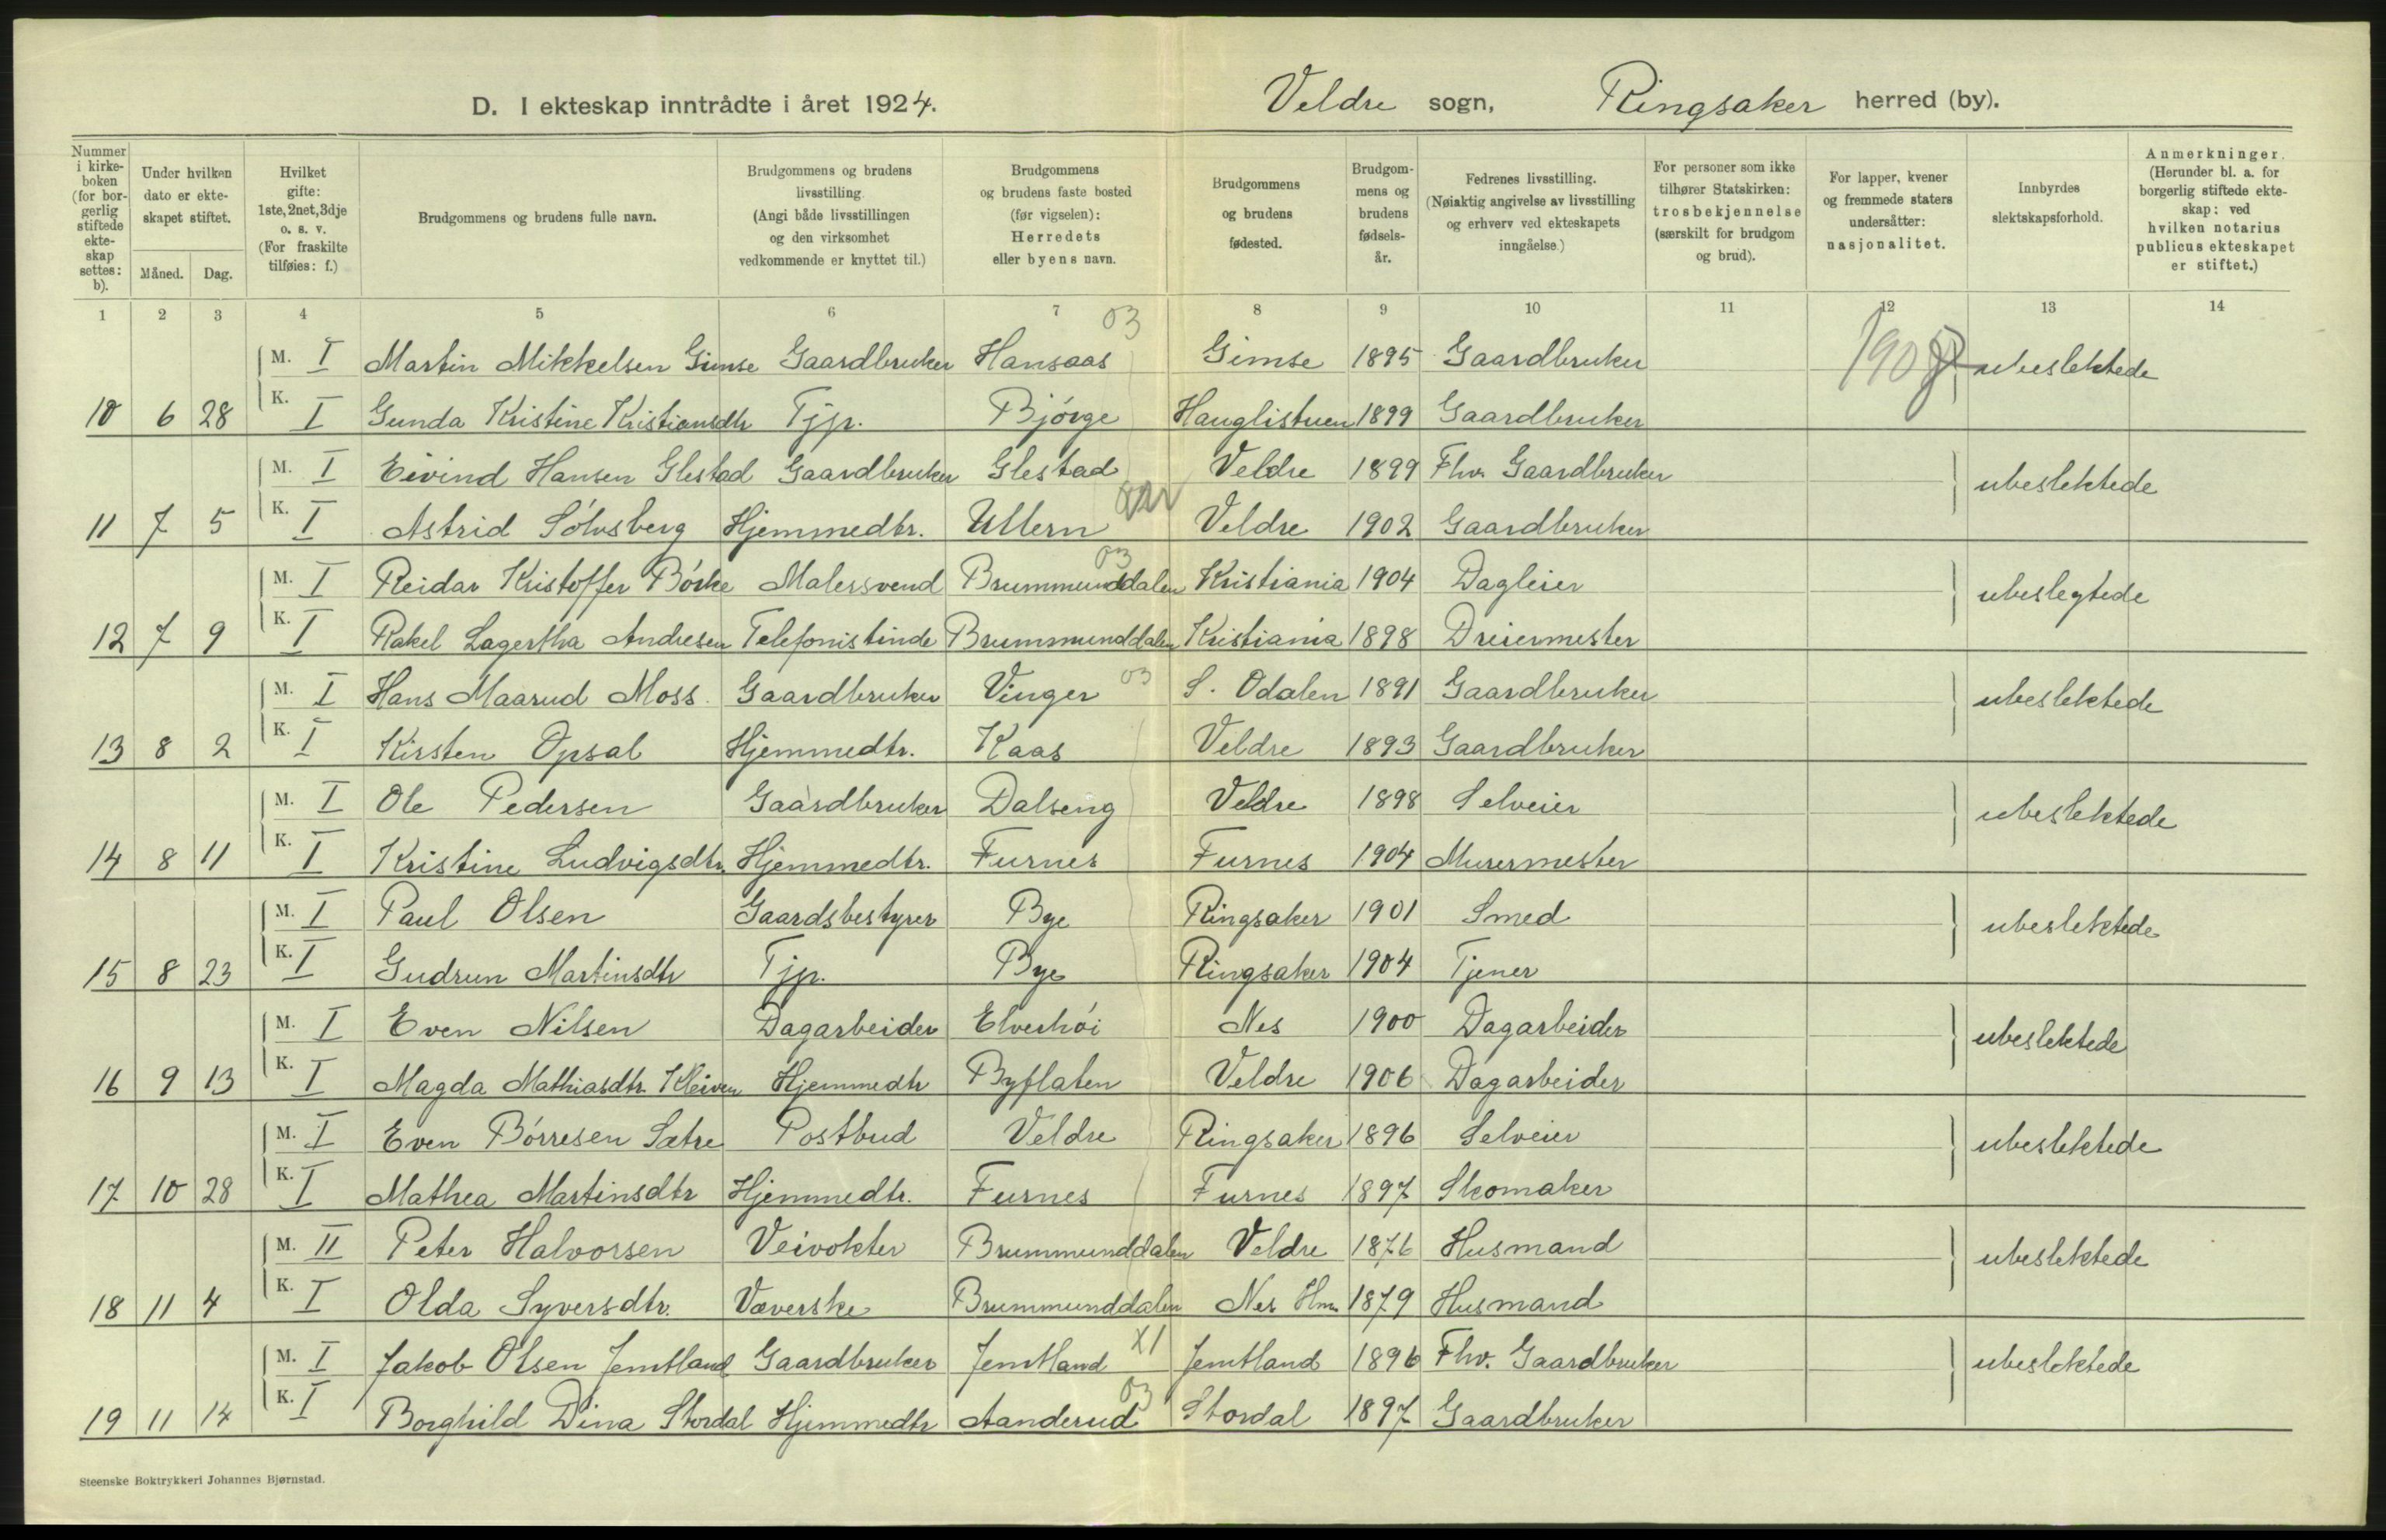 D. I ekteskap inntrådte i året 1924. Veldre sogn, Ringsaker herred (by).
Nummer i kirkeboken (for borgerlig stiftede ekteskap settes: b).
Under hvilken dato er ekteskapet stiftet.
Måned. Dag.
Hvilket gifte: 1ste, 2net, 3dje o. s. v. (For fraskilte tilføies: f.)
Brudgommens og brudens fulle navn.
Brudgommens og brudens livsstilling. (Angi både livsstillingen og den virksomhet vedkommende er knyttet til.)
Brudgommens og brudens faste bosted (før vigselen): Herredets eller byens navn.
Brudgommens og brudens fødested.
Brudgommens og brudens fødselsår.
Fedrenes livsstilling. (Nøiaktig angivelse av livsstilling og erhverv ved ekteskapets inngåelse.)
For personer som ikke tilhører Statskirken: trosbekjennelse (særskilt for brudgom og brud).
For lapper, kvener og fremmede staters undersåtter: nasjonalitet.
Innbyrdes slektskapsforhold.
Anmerkninger. (Herunder bl. a. for borgerlig stiftede ekteskap: ved hvilken notarius publicus ekteskapet er stiftet.)
1 2 3 4 5 6 7 8 9 10 11 12 13 14
03
M. I Martin Mikkelsen Gimse Gaardbruker Hansaas Gimse 1895 Gaardbruker ubeslektede
10 6 28 K. I Gunda Kristine Kristiansdtr Tjp. Bjørge Hauglistuen 1899 Gaardbruker
M. I Eivind Hansen Glestad Gaardbruker Glestad Veldre 1899 Fhv. Gaardbruker ubeslektede
11 7 5 K. I Astrid Sólvsberg Hjemmedtr. Ullern Veldre 1902 Gaardbruker
03
M. I Reidar Kristoffer Bórke Malersvend Brummunddalen Kristiania 1904 Dagleier ubeslegtede
12 7 9 K. I Rakel Lagertha Andresen Telefonistinde Brummunddalen Kristiania 1898 Dreiermester
M. I Hans Maarud Moss. Gaardbruker Vinger 03 S. Odalen 1891 Gaardbruker ubeslektede
13 8 2 K. I Kirsten Opsal Hjemmedtr. Kaas Veldre 1893 Gaardbruker
M. I Ole Pedersen Gaardbruker Dalseng Veldre 1898 Selveier ubeslektede
14 8 11 K. I Kristine Ludvigsdtr. Hjemmedtr. Furnes Furnes 1904 Murermester
M. I Paul Olsen Gaardsbestyrer Bye Ringsaker 1901 Smed ubeslektede
15 8 23 K. I Gudrun Martinsdtr Tjp. Bye Ringsaker 1904 Tjener
M. I Even Nilsen Dagarbeider Elverhói Nes 1900 Dagarbeider ubeslektede
16 9 13 K. I Magda Mathiasdtr. Kleiven Hjemmedtr Byflaten Veldre 1906 Dagarbeider
M. I Even Bórresen Sætre Postbud Veldre Ringsaker 1896 Selveier ubeslektede
17 10 28 K. I Mathea Martinsdtr Hjemmedtr. Furnes Furnes 1897 Skomaker
M. II Peter Halvorsen Veivokter Brummunddalen Veldre 1876 Husmand ubeslektede
18 11 4 K. I Olda Syversdtr. Væverske Brummunddalen Nes Hm. 1879 Husmand
M. I Jakob Olsen Jemtland Gaardbruker Jemtland X1 Jemtland 1896 Fhv. Gaardbruker ubeslektede
19 11 14 K. I Borghild Dina Stordal Hjemmedtr Aanderud 03 Stordal 1897 Gaardbruker
Steenske Boktrykkeri Johannes Bjørnstad.